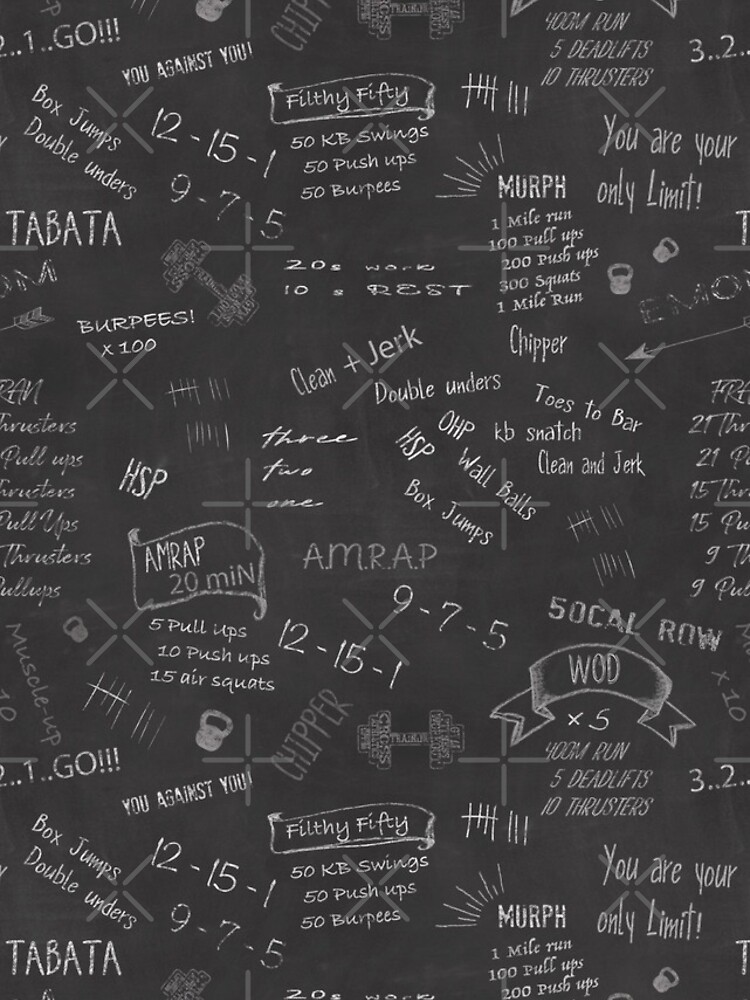 CHIPPER
CROSS
TRAIN
400M RUN
5 DEADLIFTS
10 THRUSTERS
2..1..GO!!!
3..2..
YOU AGAINST YOU!
Filthy Fifty
50 KB Swings
50 Push ups
50 Burpees
Box Jumps
Double unders
12-15-1
9-7-5
You are your
only Limit!
MURPH
1 Mile run
100 Pull ups
200 Push ups
300 Squats
1 Mile Run
TABATA
T
20s work
10 s REST
OM
EMO
BURPEES!
x 100
Chipper
Clean + Jerk
Double unders
Toes to Bar
OHP
HSP
kb snatch
Wall Balls
Clean and Jerk
Box Jumps
RAN
Thrusters
Pull ups
Thrusters
Pull Ups
Thrusters
Pullups
FRA
21 Thr
21 Pu
15 Thr
15 Pu
9 Th
9 Pul
three
two
one
HSP
AMRAP
20 miN
A.M.R.A.P
5 Pull ups
10 Push ups
15 air squats
9-7-5
12-15-1
50CAL ROW
WOD
x 5
Muscle-up
x 10
10
CHIPPER
CROSS
TRAIN
400M RUN
5 DEADLIFTS
10 THRUSTERS
2..1..GO!!!
3..2..
YOU AGAINST YOU!
Filthy Fifty
50 KB Swings
50 Push ups
50 Burpees
Box Jumps
Double unders
12-15-1
9-7-5
You are your
only Limit!
MURPH
1 Mile run
100 Pull ups
200 Push ups
TABATA
T
20s work